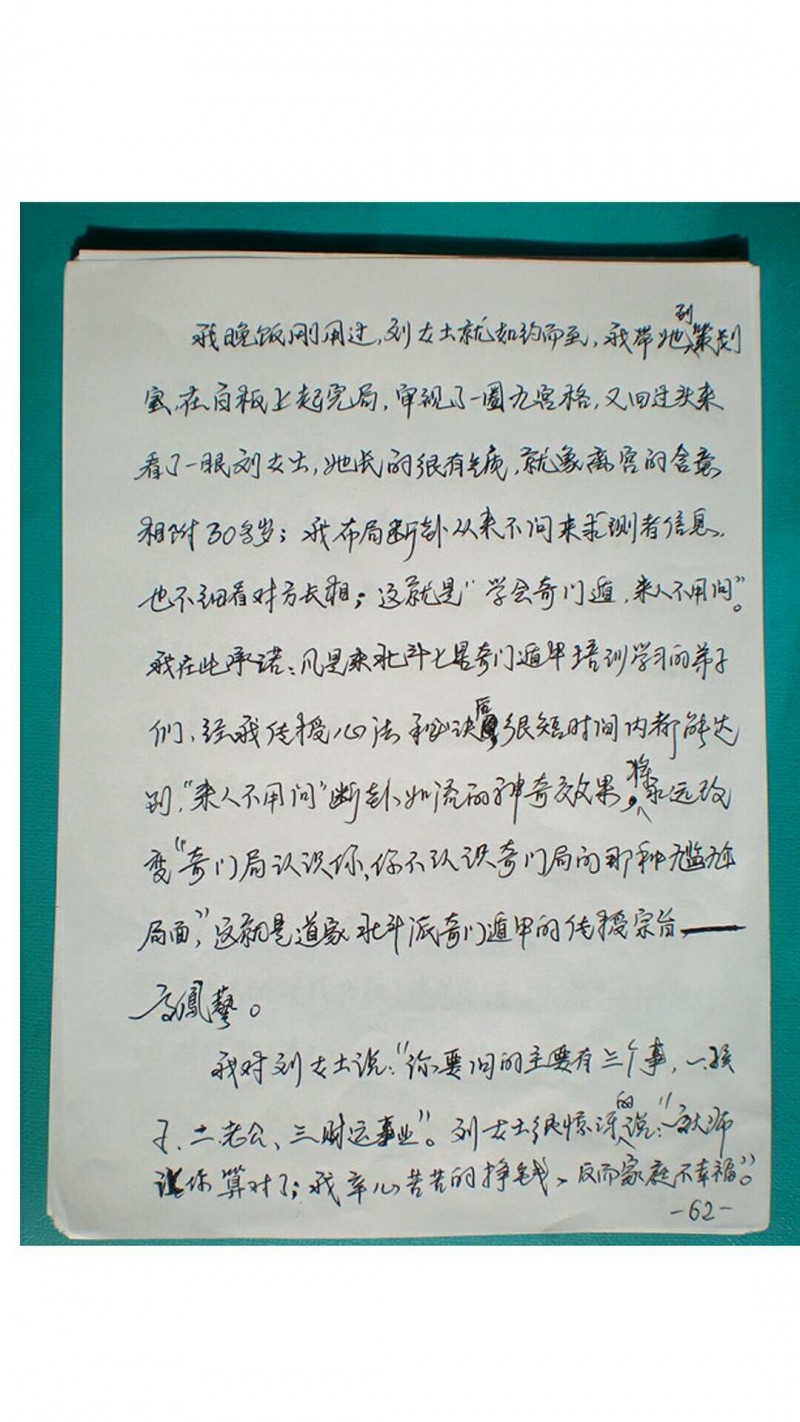 我晚饭刚用过,刘女士就如约而至,我带她到策划
室,在白板上起完局,审视了一圈九宫格,又回过头来
看了一眼刘女士,她长的很有气质,就象离宫的含意
相附30多岁;我布局断卦从来不问来求测者信息,
也不细看对方长相;这就是“学会奇门遁,来人不用问”。
我在此承诺:凡是来北斗七星奇门遁甲培训学习的弟子
们,经我传授心法秘诀后很短时间内都能达
到,“来人不用问”断卦如流的神奇效果,将永远改
变“奇门局认识你,你不认识奇门局的那种尴尬
局面”,这就是道家北斗派奇门遁甲的传授宗旨——
高鳳藝。
我对刘女士说:“你要问的主要有三个事,一孩
子、二老公、三财运事业”。刘女士很惊讶的说:“高大师
让你算对了;我辛心苦苦的挣钱、反而家庭不幸福”。
-62-